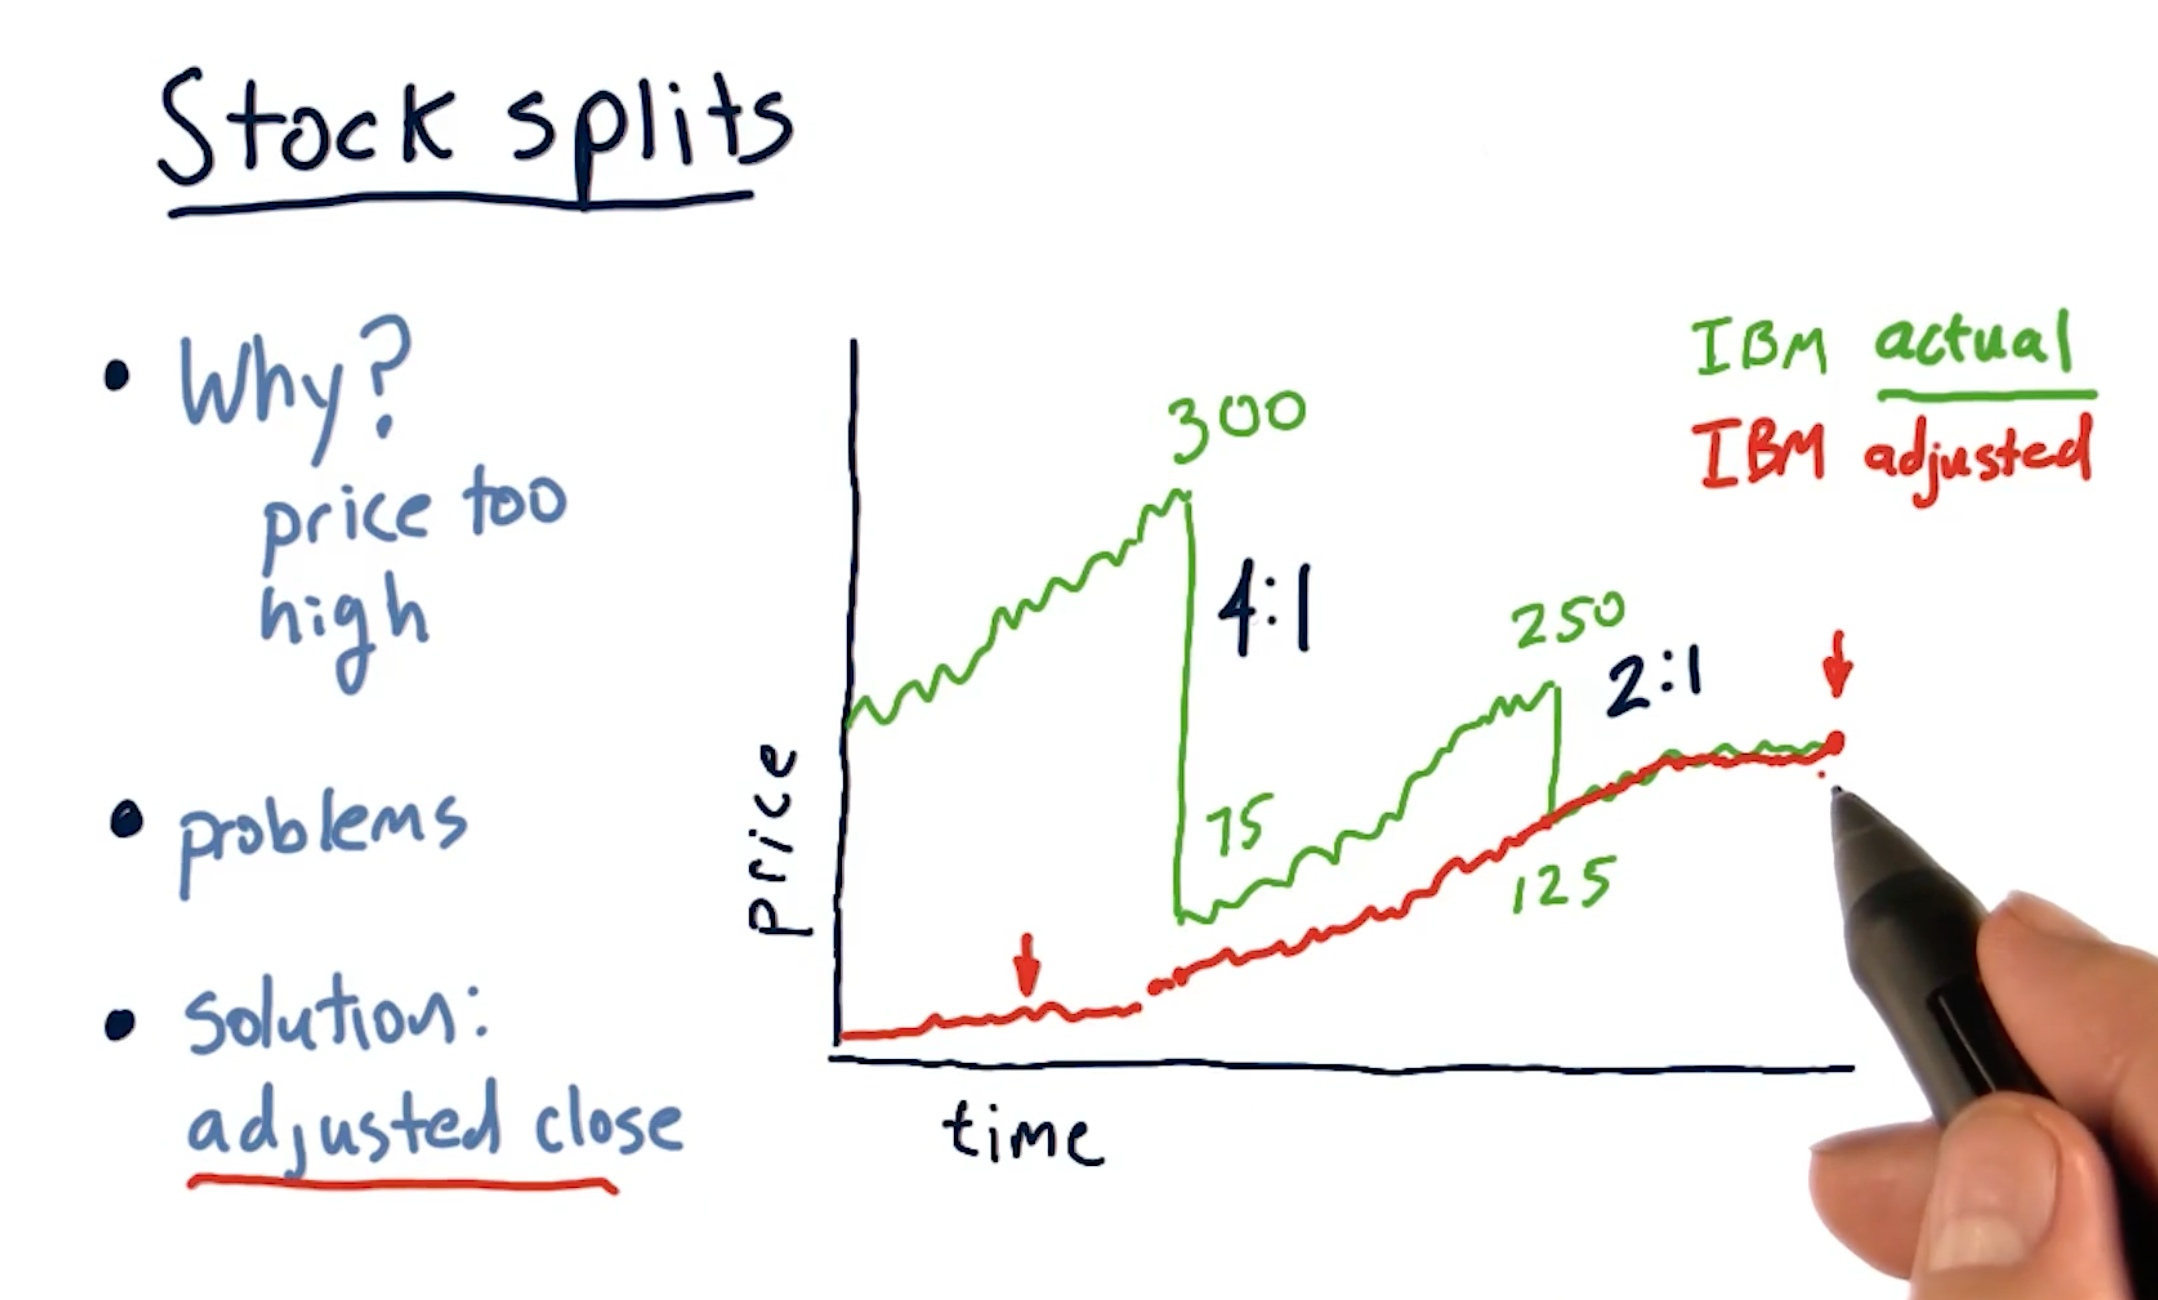 Stock splits
• Why?
price too
high
• problems
• solution:
adjusted close
IBM actual
IBM adjusted
300
4:1
250
2:1
75
125
price
time